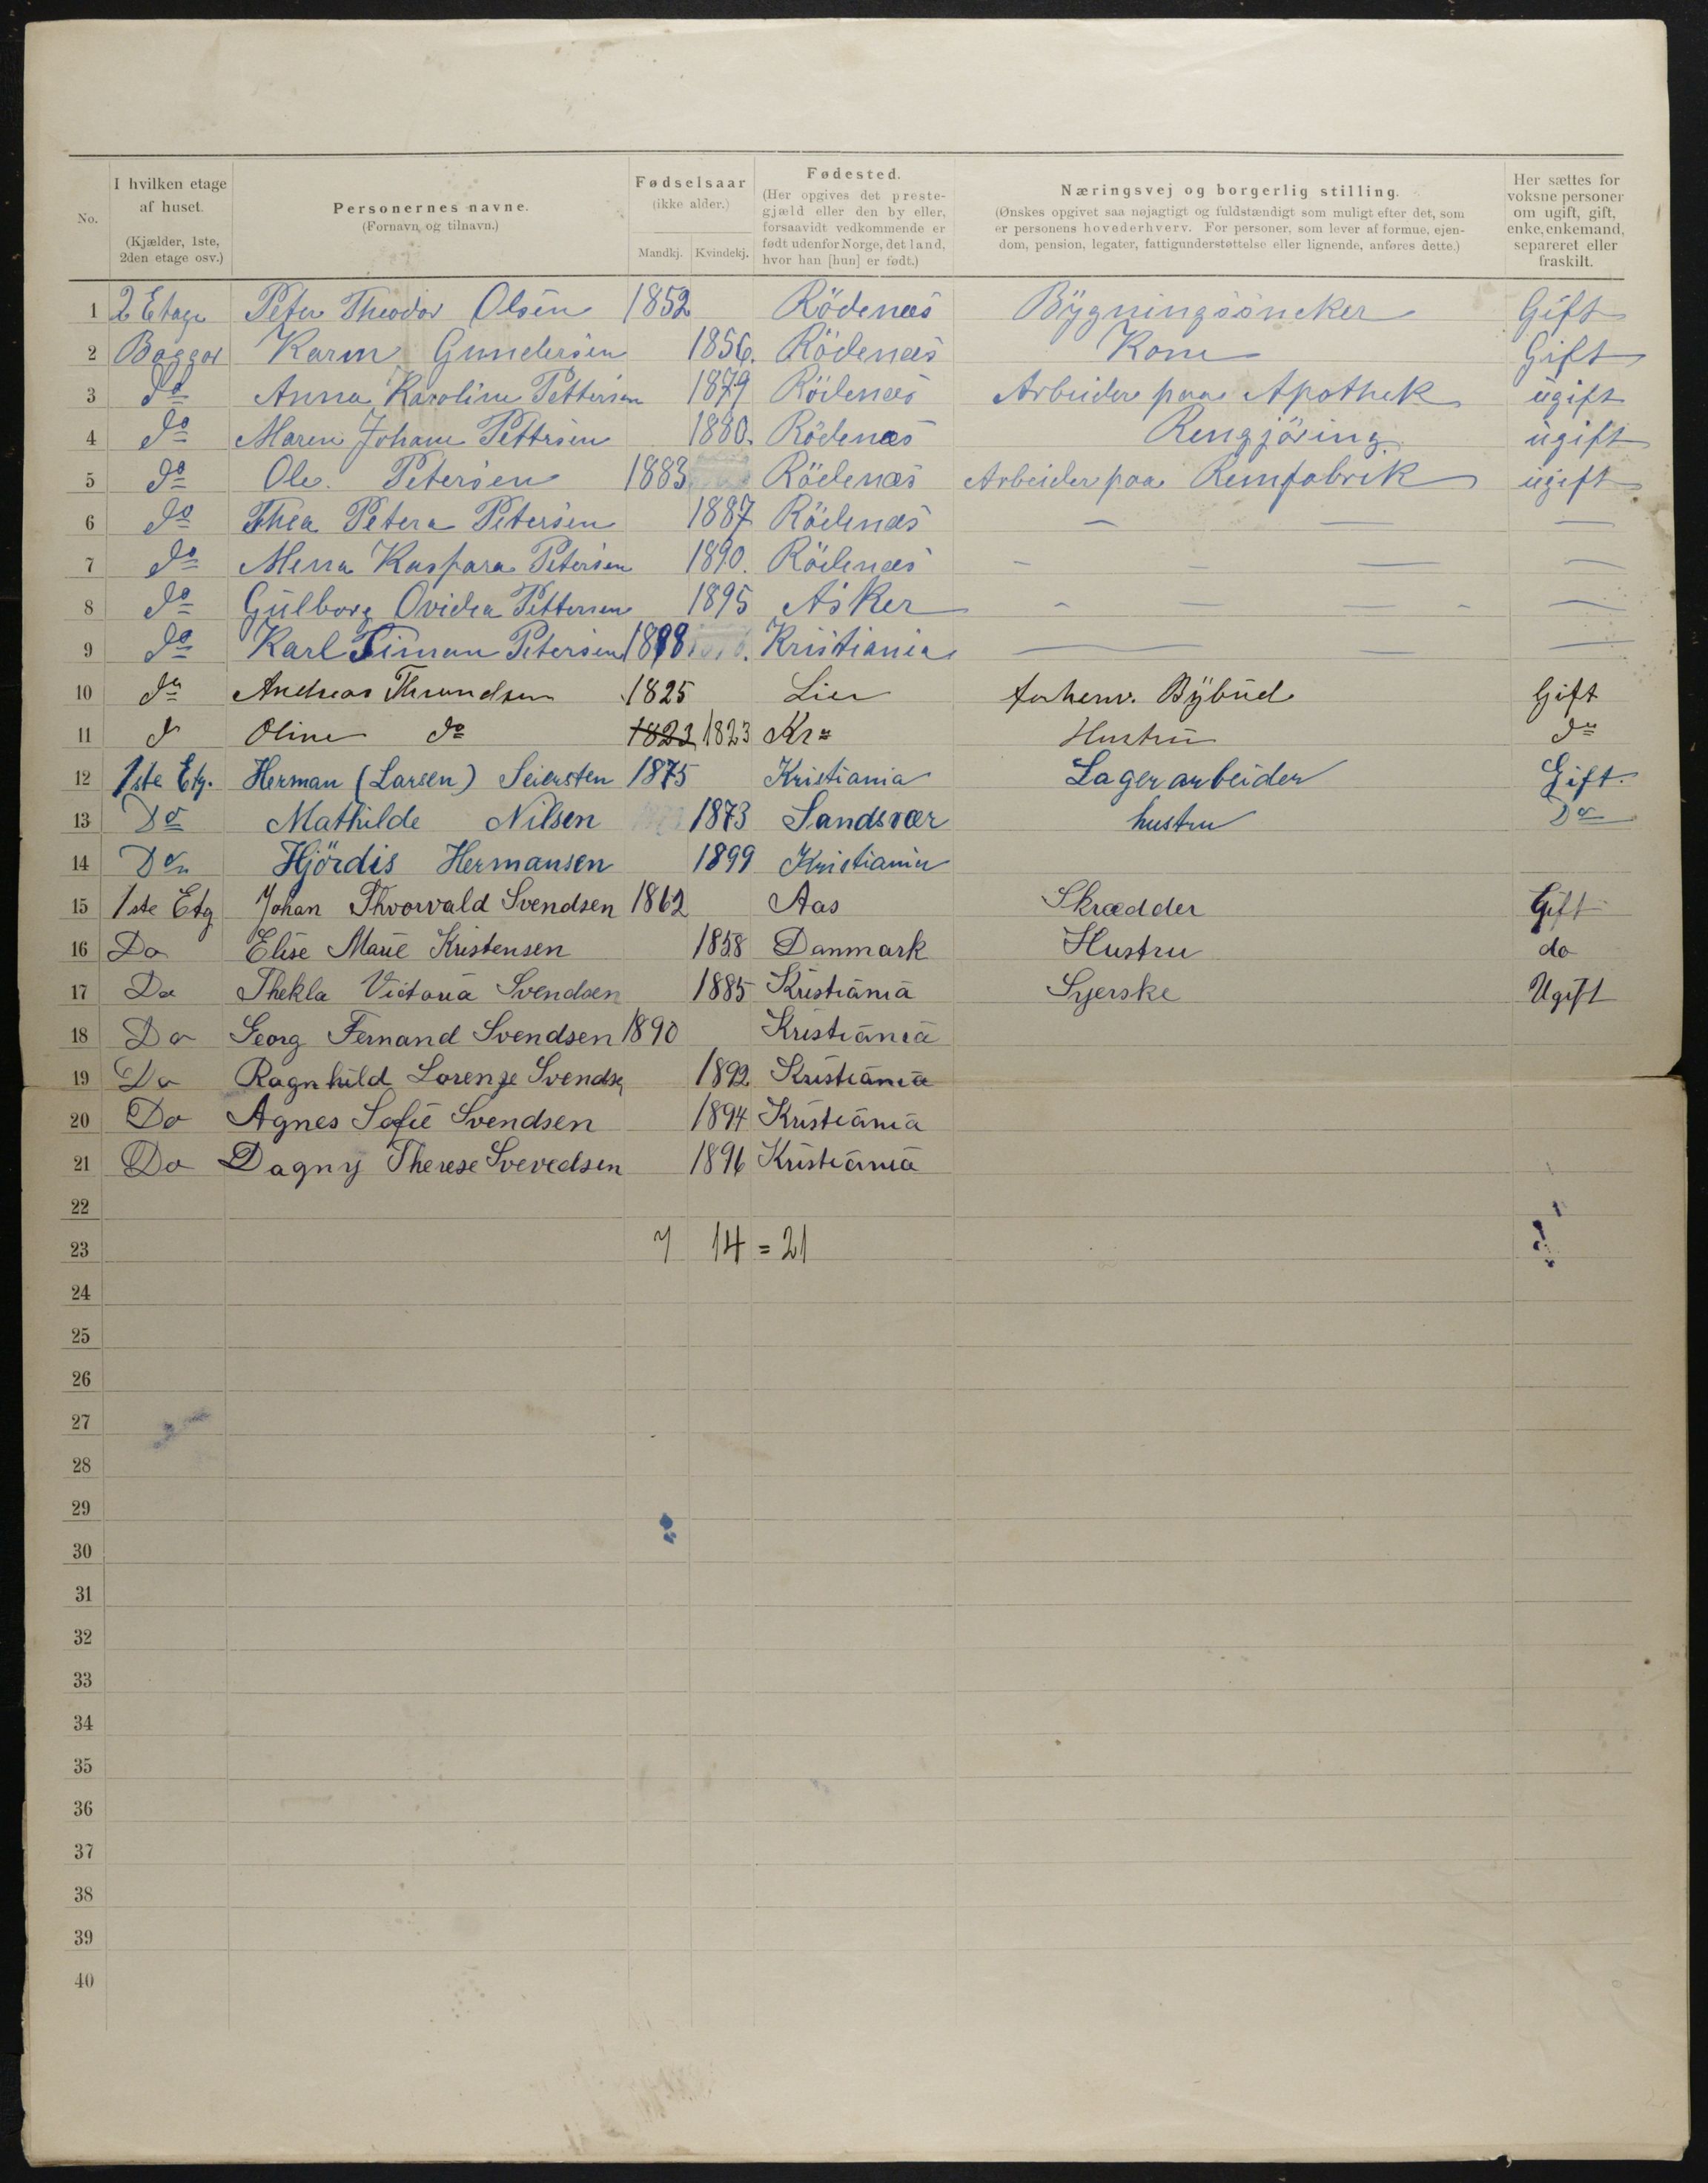 No.
I hvilken etage af huset. (Kjælder, 1ste, 2den etage osv.)
Personernes navne. (Fornavn og tilnavn.)
Fødselsaar (ikke alder.) Mandkj. Kvindekj.
Fødested. (Her opgives det prestegjæld eller den by eller, forsaavidt vedkommende er født udenfor Norge, det land, hvor han [hun] er født.)
Næringsvej og borgerlig stilling. (Ønskes opgivet saa nøjagtigt og fuldstændigt som muligt efter det, som er personens hovederhverv. For personer, som lever af formue, ejendom, pension, legater, fattigunderstøttelse eller lignende, anføres dette.)
Her sættes for voksne personer om ugift, gift, enke, enkemand, separeret eller fraskilt.
1 2 Etage Peter Theodor Olsen 1852 Rödenæs Bygningssneker Gift
2 Baggar Karen Gundersen 1856. Rödenæs Kone Gift
3 do Anna Karoline Pettersen 1879 Rödenæs Arbeider paa Apothek ugift
4 do Maren Johane Pettersen 1880. Rödenæs Rengjöring ugift
5 do Ole. Petersen 1883 Rödenæs Arbeider paa Remfabrik ugift
6 do Thea Petera Petersen 1887 Rödenæs — — —
7 do Petersen 1890. Rödenæs - — — — —
8 do Gulborg Ovidia Pettersen 1895 Asker - — — - —
9 do Karl Petersen 1898 Kristiania — — — —
10 do Andreas Thrundsen 1825 Lier forhenv. Bybud Gift
11 d Oline do 1823 1823 Kra Hustru do
12 1ste Etg. Herman (Larsen) Seiersten 1875 Kristiania Lagerarbeider Gift.
13 Do Mathilde Nilsen 1873 Sandsvær hustru Do
14 Do Hjördis Hermansen 1899 Kristiania
15 1ste Etg Johan Thvorvald Svendsen 1862 Aas Skrædder Gift
16 Do Elise Marie Kristensen 1858 Danmark Hustru do
17 Do Thekla Victoria Svendsen 1885 Kristiania Syerske Ugift
18 Do Georg Fernand Svendsen 1890 Kristiania
19 Do Ragnhild Lorenze Svendsen 1892 Kristiania
20 Do Agnes Sofie Svendsen 1894 Kristiania
21 Do Dagny Therese Svevedsen 1896 Kristiania
22
23 7 14 = 21
24
25
26
27
28
29
30
31
32
33
34
35
36
37
38
39
40